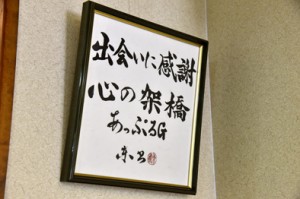 出会いに感謝
心の架橋
あっぷるG